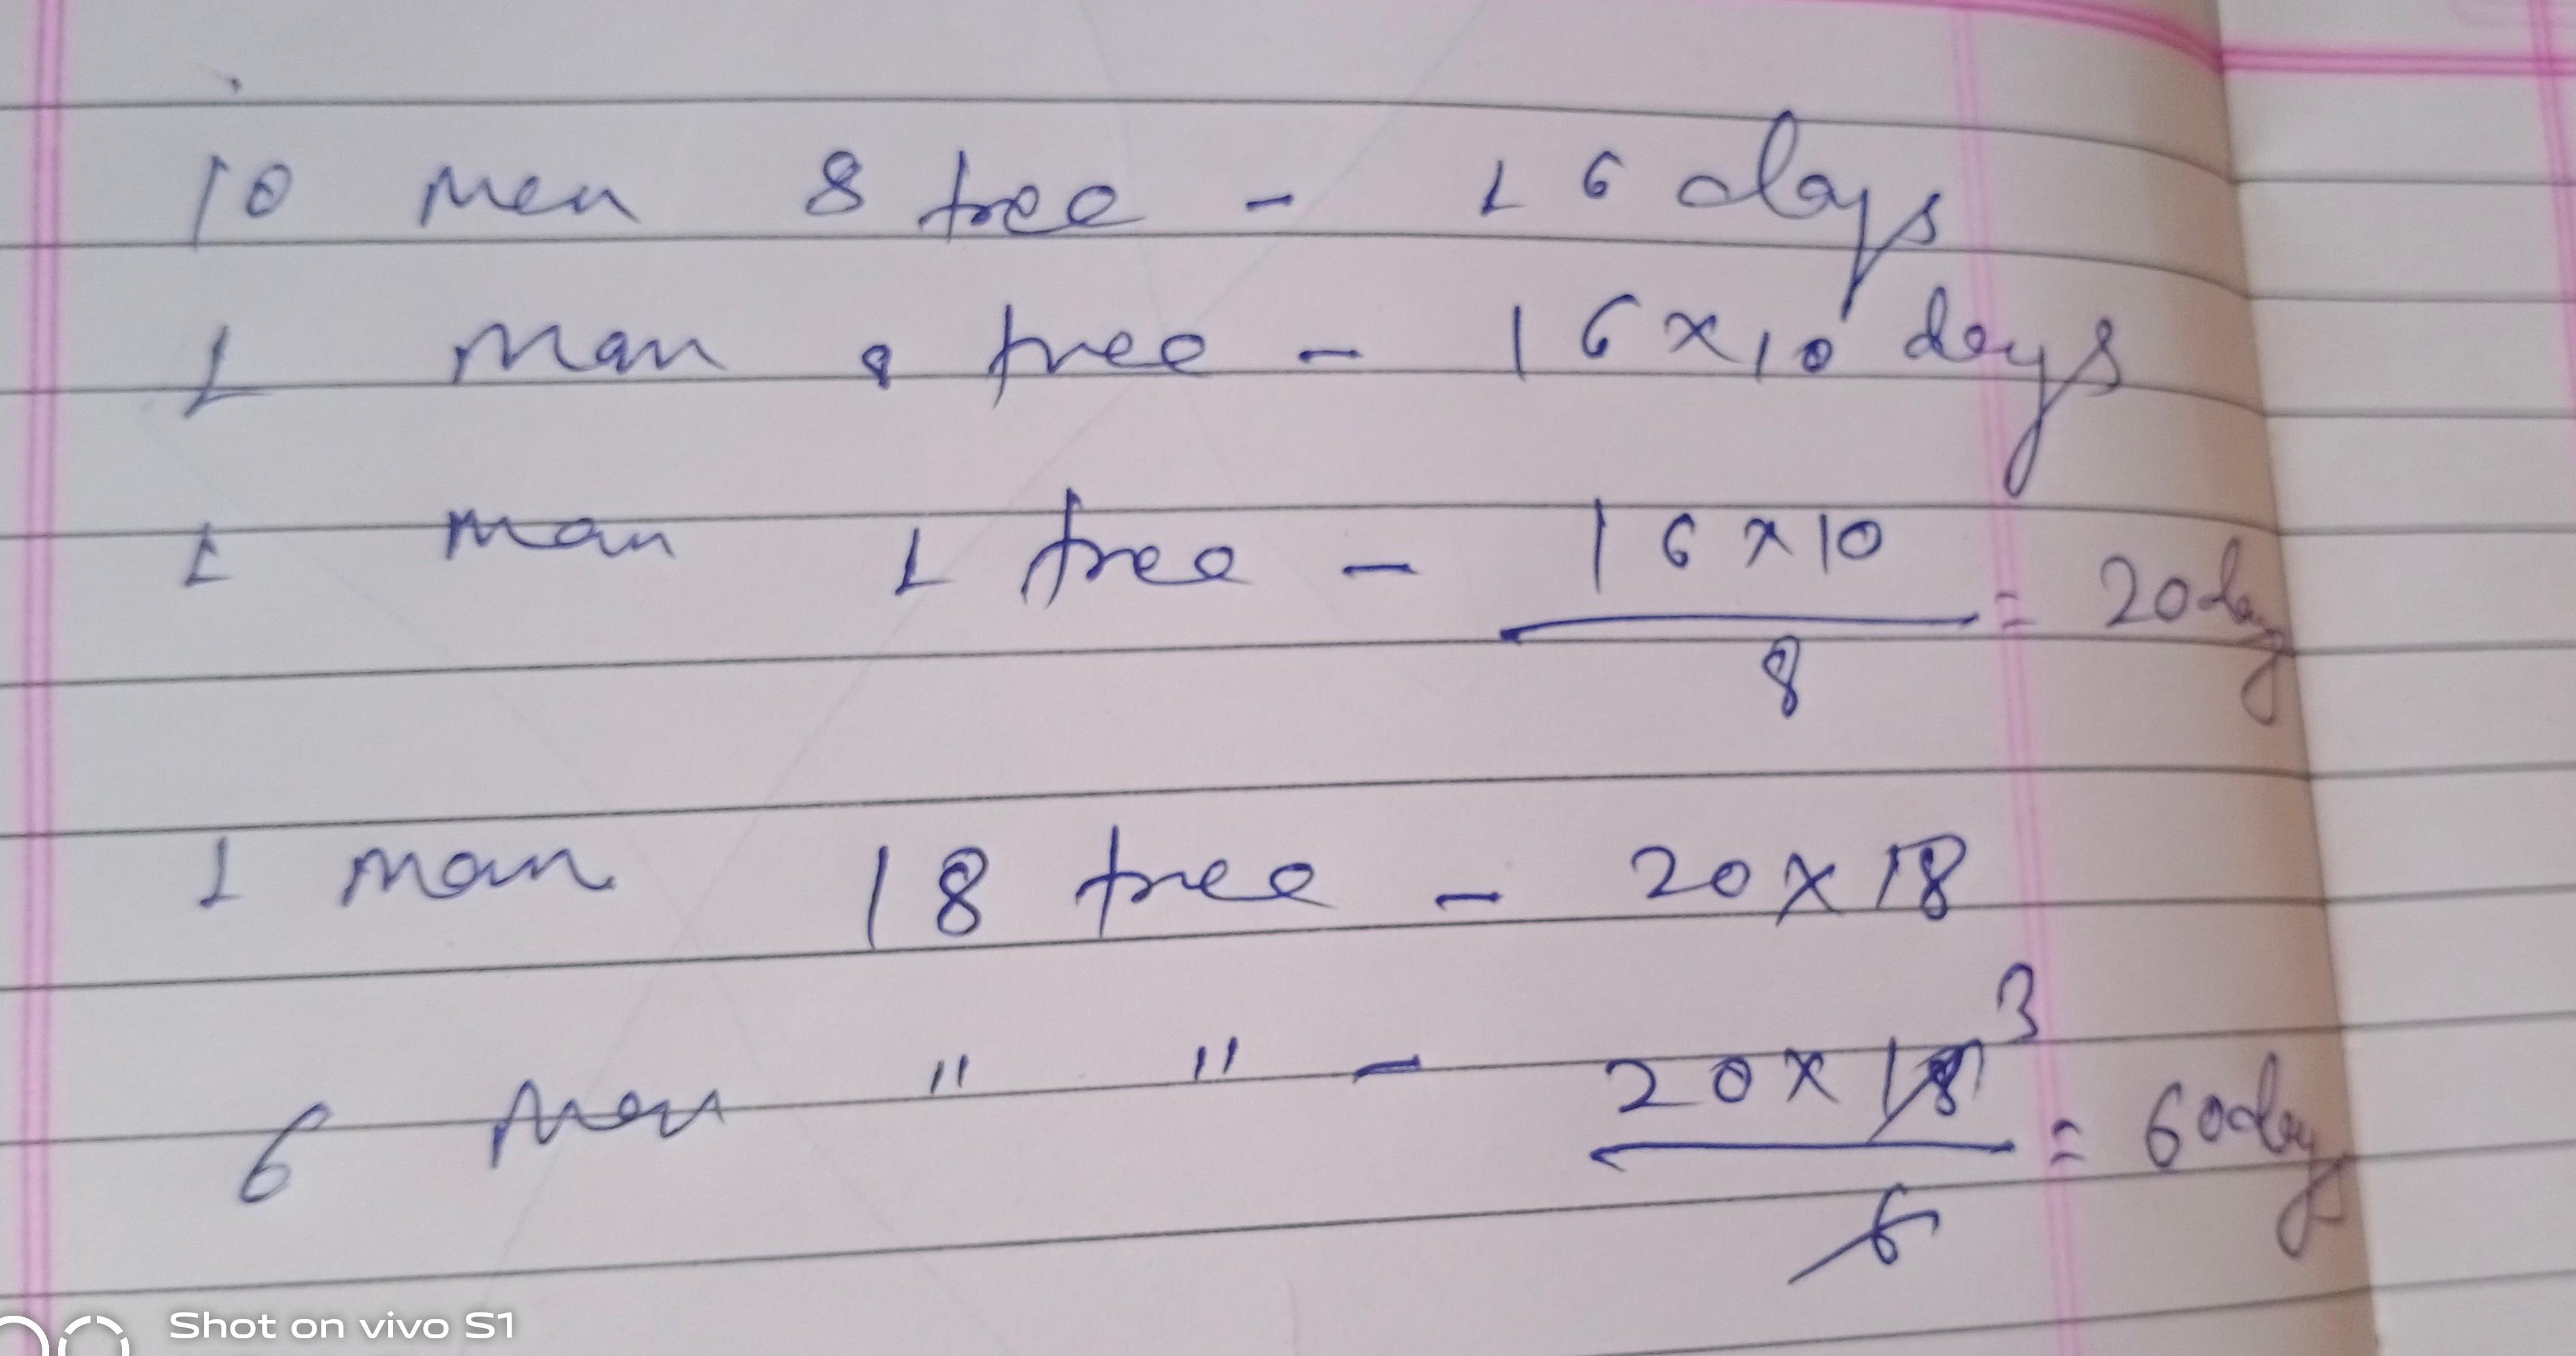 10 men 8 tree - 16 days
1 man 8 tree - 16 x 10 days
1 man 1 tree - 16 x 10 / 8 = 20 day
1 man 18 tree - 20 x 18
6 men " " - 20 x 18 3 / 6 = 60 days
Shot on vivo S1